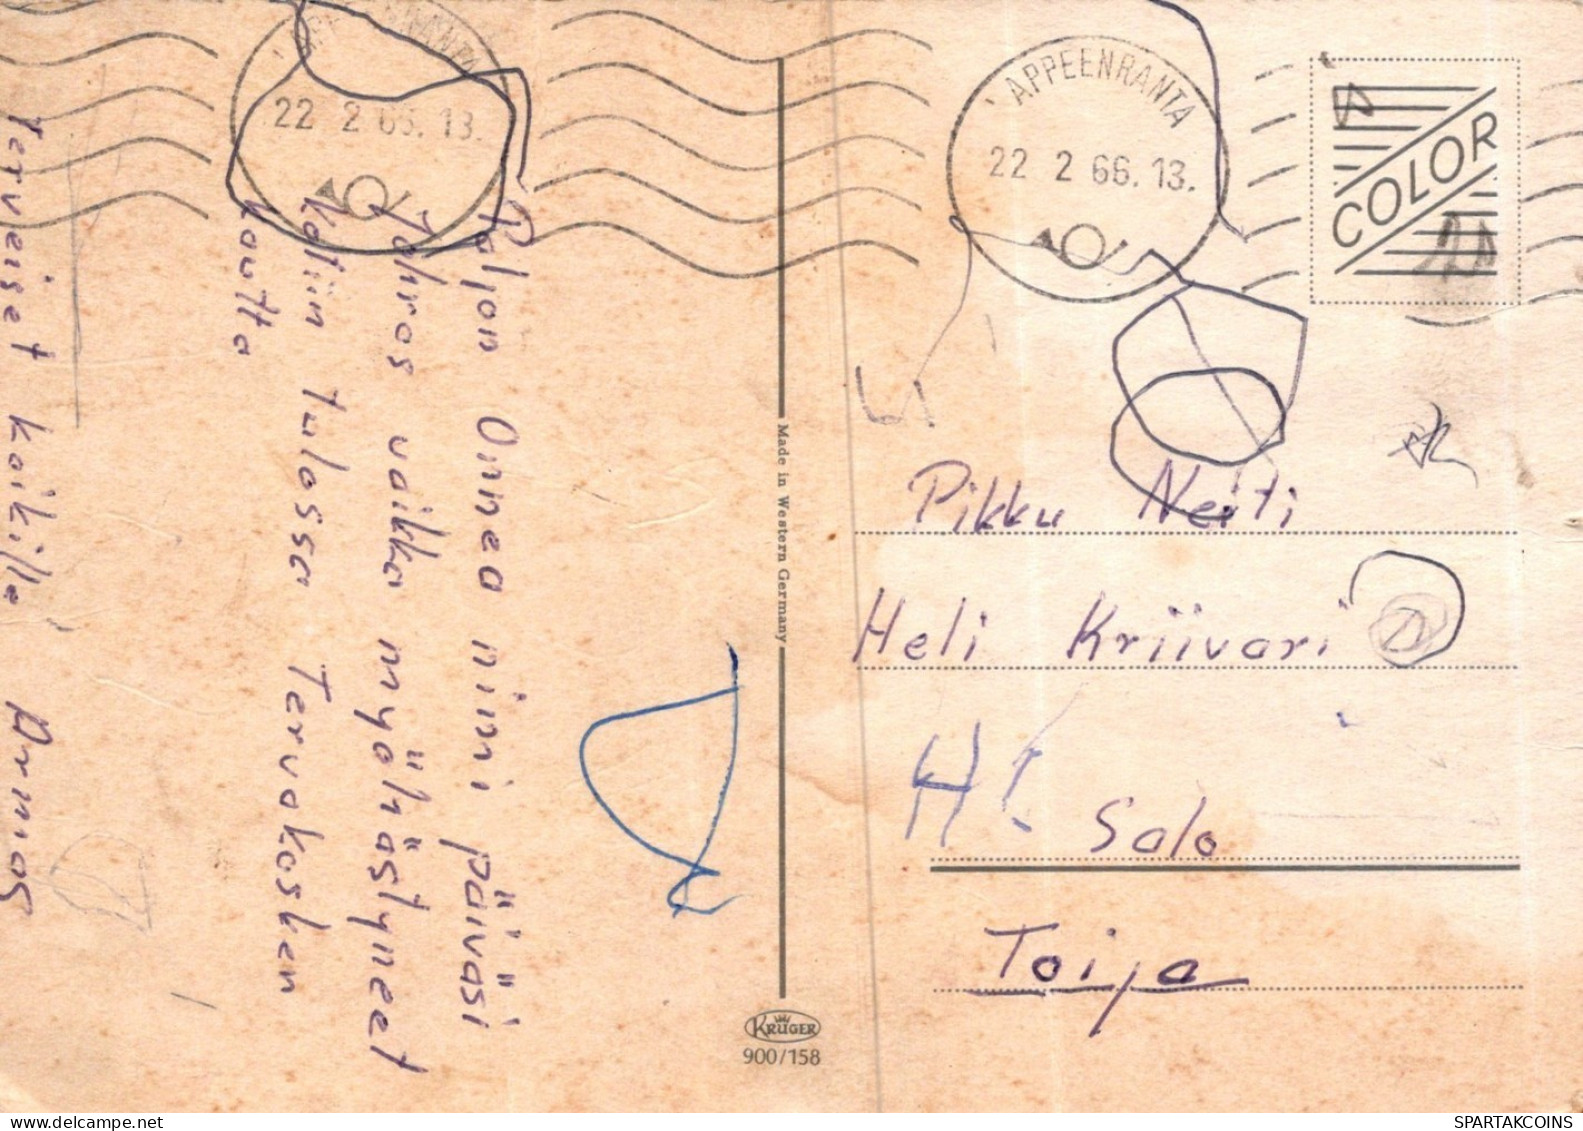 LAPPEENRANTA
22 2 66. 13.
Paljon Onnea nimi päiväsi
Johros vaikka myöhästyneet
Kotiin tulossa Tervakosken
kautta
Terveiset kaikille Armas
Made in Western Germany
KRÜGER
900/158
APPEENRANTA
22 2 66. 13.
COLOR
Pikku Neiti
Heli Kriivari
H!
Salo
Toija
SPARTAKCOINS